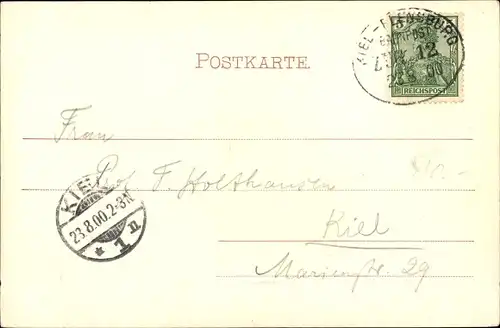 KIEL-FLENSBURG
BAHNPOST
ZUG 12
23 8 00
REICHSPOST
POSTKARTE
Frau
Prof F. Holthausen
KIEL
23.8.00.2-3N
* 1 n
Kiel
Marienstr. 29